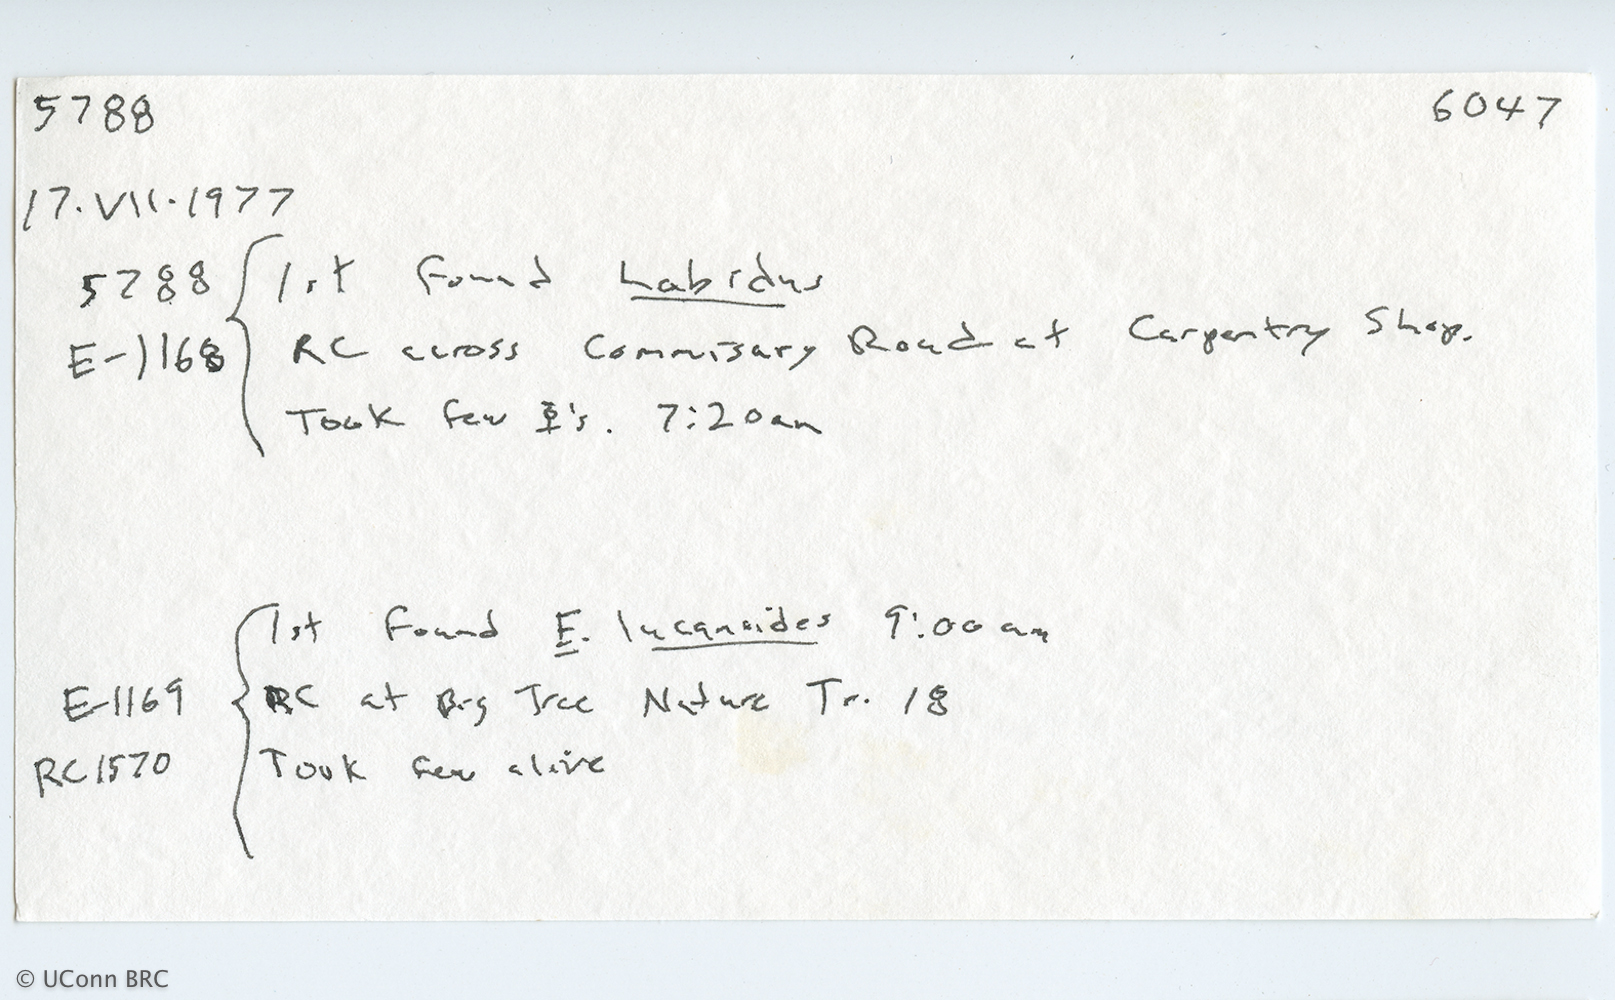 5788 6047
17.VII.1977
5788 1st found Labidus
E-1168 RC across Commisary Road at Carpentry Shop.
Took few ☿'s. 7:20am
1st found E. lucanoides 9:00 am
E-1169 RC at Big Tree Nature Tr. 18
RC1570 Took few alive
© UConn BRC